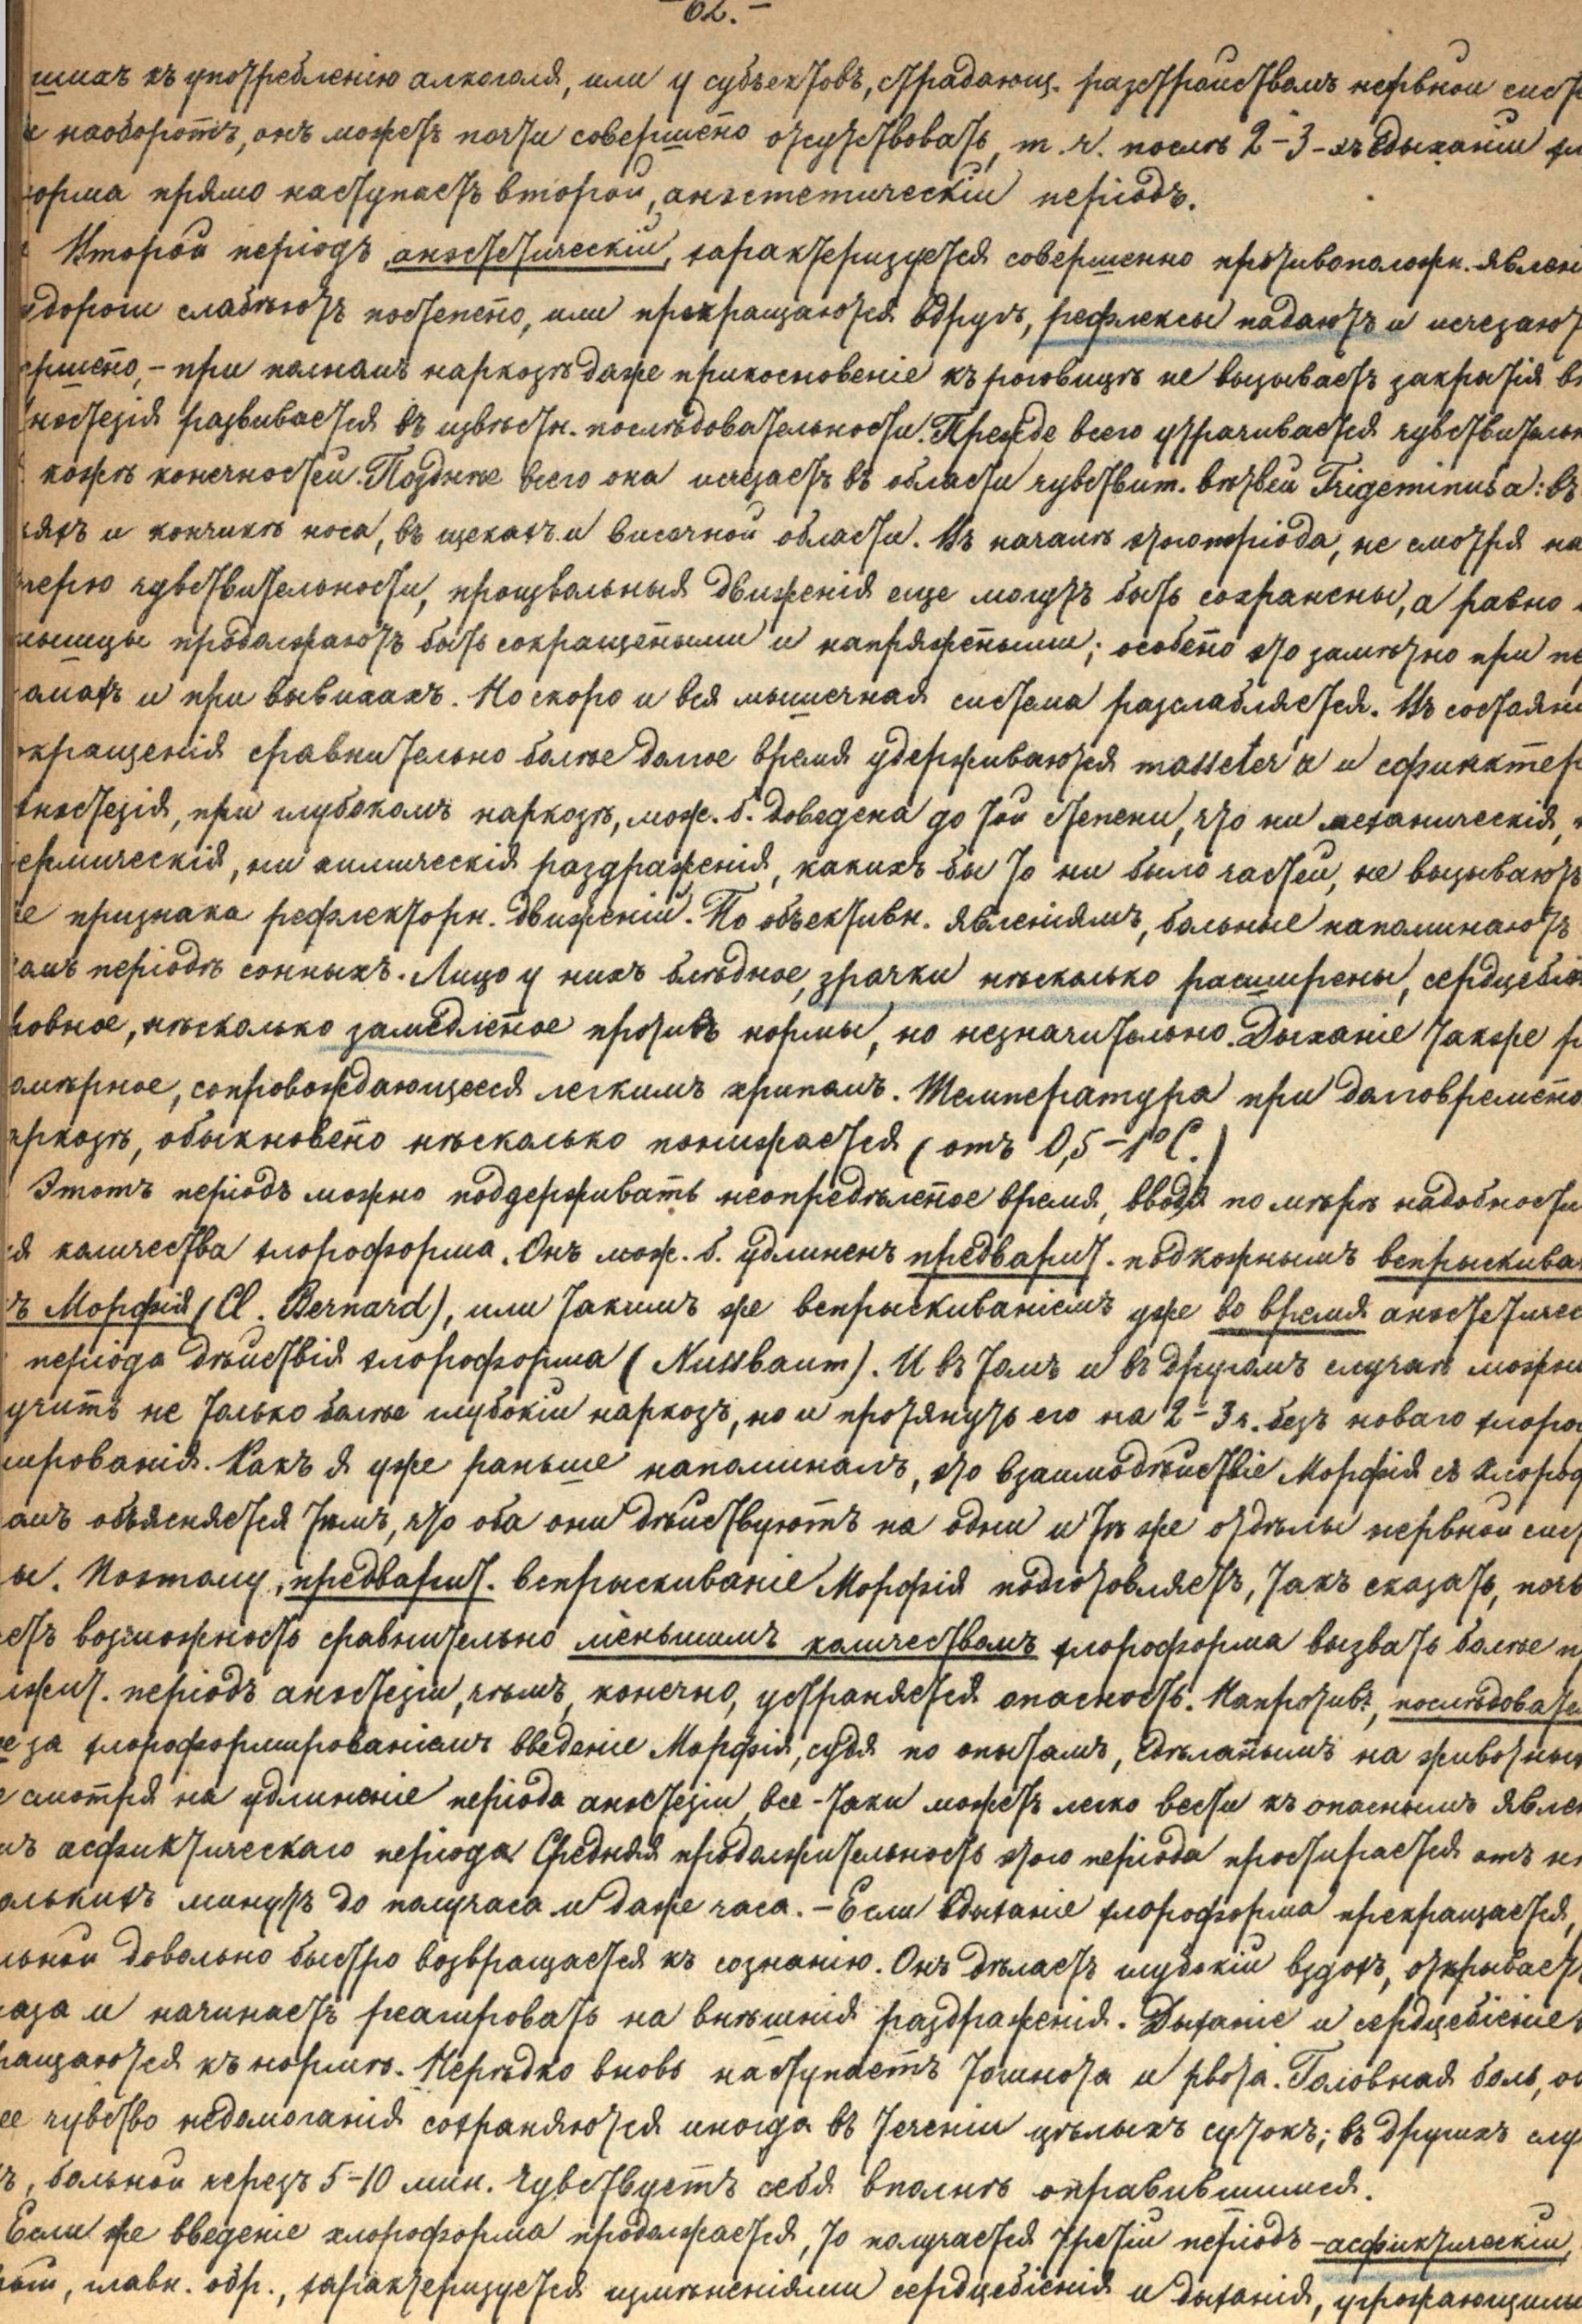 62.
шихъ къ употребленію алкоголя, или у субъектовъ, страдающ. разстройствомъ нервной сист
и наоборотъ, онъ можетъ почти совершено отсутствовать, т. ч. послѣ 2-3-хъ вдыханій хл
орма прямо наступаетъ второй, анэстетическій періодъ.
Второй періодъ, анэстетическій, характеризуется совершенно противоположн. явлен
удороги слабѣютъ постепено, или прекращаются вдругъ, рефлексы падаютъ и исчезают
ершено, - при полномъ наркозѣ даже прикосновеніе къ роговицѣ не вызываетъ закрытія в
нэстезія развивается въ извѣстн. послѣдовательности. Прежде всего утрачивается чувствительн
кожѣ конечностей. Позднѣе всего она исчезаетъ въ области чувствит. вѣтвей Trigeminus'a: въ
яхъ и кончикѣ носа, въ щекахъ и височной области. Въ началѣ этого періода, не смотря на
терю чувствительности, произвольныя движенія еще могутъ быть сохранены, а равно
мышцы продолжаютъ быть сокращеными и напряжеными; особено это замѣтно при пе
омахъ и при вывихахъ. Но скоро и вся мышечная система разслабляется. Въ состояни
окращенія сравнительно болѣе долгое время удерживаются masseter'ы и сфинктер
анэстезія, при глубокомъ наркозѣ, мож. б. доведена до той степени, что ни механическія,
ермическія, ни химическія раздраженія, какихъ бы то ни было частей, не вызываютъ
же признака рефлекторн. движеній. По объективн. явленіямъ, больные напоминаютъ
омъ періодѣ сонныхъ. Лицо у нихъ блѣдное, зрачки нѣсколько расширены, сердцебіен
ровное, нѣсколько замедленое противъ нормы, но незначительно. Дыханіе также р
омѣрное, сопровождающееся легкимъ хрипомъ. Температура при долговремено
аркозѣ, обыкновено нѣсколько понижается (отъ 0,5-1° С.)
Этотъ періодъ можно поддерживать неопредѣленое время, вводя по мѣрѣ надобности
ыя количества хлороформа. Онъ мож. б. удлиненъ предварит. подкожнымъ впрыскива
ъ Морфія (Cl. Bernard), или такимъ же впрыскиваніемъ уже во время анэстетичес
періода дѣйствія хлороформа (Nussbaum). И въ томъ и въ другомъ случаѣ можн
учить не только болѣе глубокій наркозъ, но и протянуть его на 2-3 ч. безъ новаго хлоро
мированія. Какъ я уже раньше напоминалъ, это взаимодѣйствіе Морфія съ хлороф
омъ объясняется тѣмъ, что оба они дѣйствуютъ на одни и тѣ же отдѣлы нервной сист
ы. Поэтому, предварит. впрыскиваніе Морфія подготовляетъ, такъ сказать, почв
етъ возможность сравнительно меньшимъ количествомъ хлороформа вызвать болѣе п
лжит. періодъ анэстезіи, чѣмъ, конечно, устраняется опасность. Напротивъ, послѣдовател
е за хлороформированіемъ введеніе Морфія, судя по опытамъ, сдѣланымъ на животных
е смотря на удлиненіе періода анэстезіи, все-таки можетъ легко вести къ опаснымъ явле
мъ асфиктическаго періода. Средняя продолжительность этого періода простирается отъ нѣ
олькихъ минутъ до получаса и даже часа. - Если вдыханіе хлороформа прекращается,
льной довольно быстро возвращается къ сознанію. Онъ дѣлаетъ глубокій вздохъ, открываетъ
лаза и начинаетъ реагировать на внѣшнія раздраженія. Дыханіе и сердцебіеніе
ращаются къ нормѣ. Нерѣдко вновь наступаетъ тошнота и рвота. Головная боль, об
ее чувство недомоганія сохраняются иногда въ теченіи цѣлыхъ сутокъ; въ другихъ слу
ъ, больной черезъ 5-10 мин. чувствуетъ себя вполнѣ оправившимся.
Если же введеніе хлороформа продолжается, то получается третій періодъ - асфиктическій,
рый, главн. обр., характеризуется измѣненіями сердцебіенія и дыханія, угрожающими